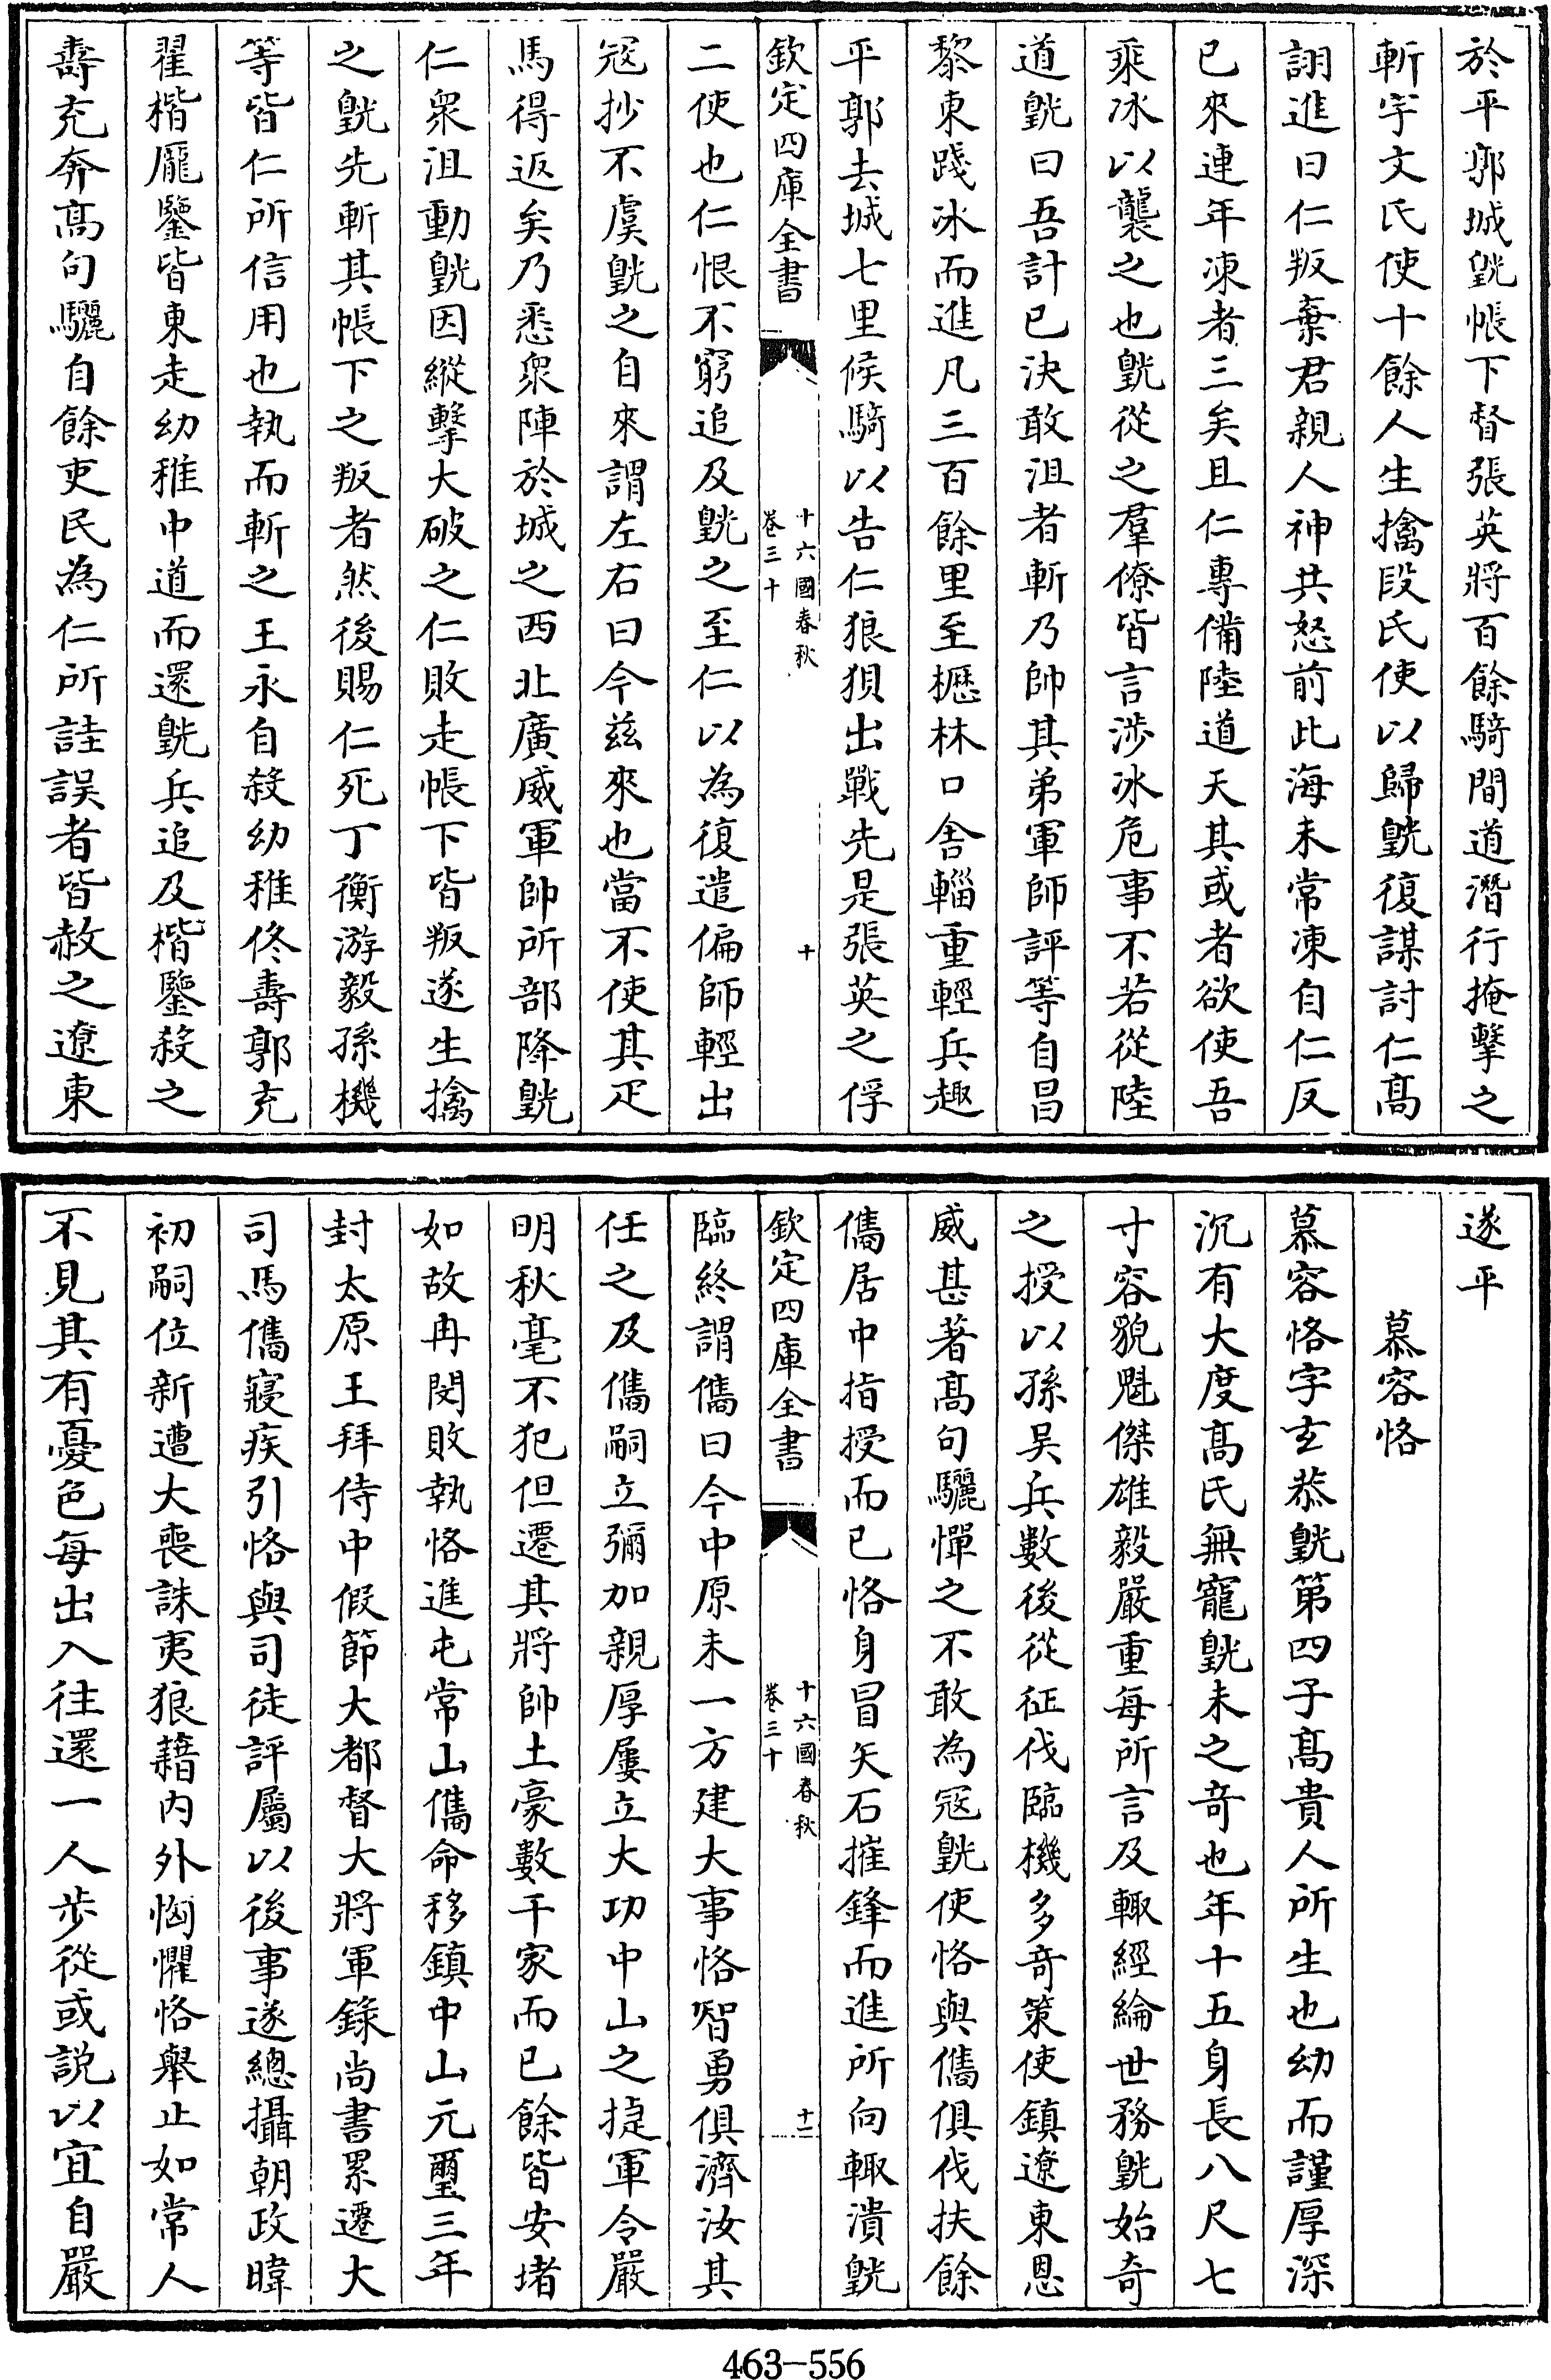 於平郭城皝帳下督張英將百餘騎間道潛行掩擊之
斬宇文氏使十餘人生擒段氏使以歸皝復謀討仁髙
詡進曰仁叛棄君親人神共怒前此海未常凍自仁反
已來連年凍者三矣且仁專備陸道天其或者欲使吾
乘冰以襲之也皝從之羣僚皆言涉冰危事不若從陸
道皝曰吾計已決敢沮者斬乃帥其弟軍師評等自昌
黎東踐冰而進凡三百餘里至櫪林口舎輜重輕兵趣
平郭去城七里候騎以告仁狼狽出戰先是張英之俘
欽定四庫全書
十六國春秋
卷三十
十
二使也仁恨不窮追及皝之至仁以為復遣偏師輕出
冦抄不虞皝之自來謂左右曰今兹來也當不使其疋
馬得返矣乃悉衆陣於城之西北廣威軍帥所部降皝
仁衆沮動皝因縱擊大破之仁敗走帳下皆叛遂生擒
之皝先斬其帳下之叛者然後賜仁死丁衡游毅孫機
等皆仁所信用也執而斬之王永自殺幼稚佟壽郭充
翟楷龎鑒皆東走幼稚中道而還皝兵追及楷鑒殺之
壽充奔髙句驪自餘吏民為仁所詿誤者皆赦之遼東
遂平
慕容恪
慕容恪字𤣥恭皝第四子髙貴人所生也幼而謹厚深
沉有大度髙氏無寵皝未之竒也年十五身長八尺七
寸容貌魁傑雄毅嚴重每所言及輙經綸世務皝始奇
之授以孫吴兵數後從征伐臨機多竒策使鎮遼東恩
威甚著髙句驪憚之不敢為冦皝使恪與儁俱伐扶餘
儁居中指授而已恪身冒矢石摧鋒而進所向輙潰皝
欽定四庫全書
十六國春秋
卷三十
十一
臨終謂儁曰今中原未一方建大事恪智勇俱濟汝其
任之及儁嗣立彌加親厚屢立大功中山之㨗軍令嚴
明秋毫不犯但遷其將帥土豪數千家而已餘皆安堵
如故冉閔敗執恪進屯常山儁命移鎮中山元璽三年
封太原王拜侍中假節大都督大將軍錄尚書累遷大
司馬儁寢疾引恪與司徒評屬以後事遂總攝朝政暐
初嗣位新遭大喪誅夷狼藉内外恟懼恪舉止如常人
不見其有憂色每出入往還一人步從或説以宜自嚴
463-556